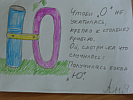 Чтобы „О" не
укатилась,
крепко к столбику
прибью.
Ой, смотри-ка что
случилось:
Получилась буква
„Ю".